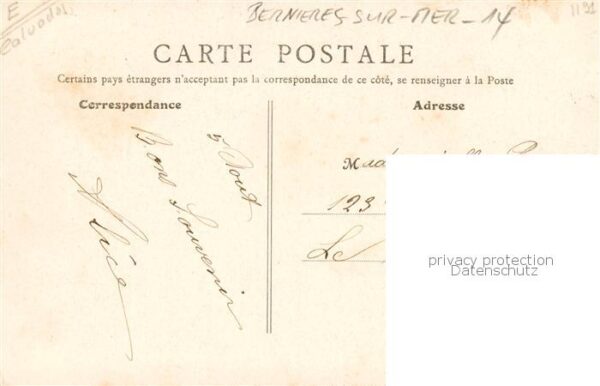 E
Calvados
BERNIERES-SUR-MER-14
1191
CARTE POSTALE
Certains pays étrangers n'acceptant pas la correspondance de ce côté, se renseigner à la Poste
Correspondance
Adresse
5 Août
Bons Souvenir
Alice
123
Le
privacy protection
Datenschutz